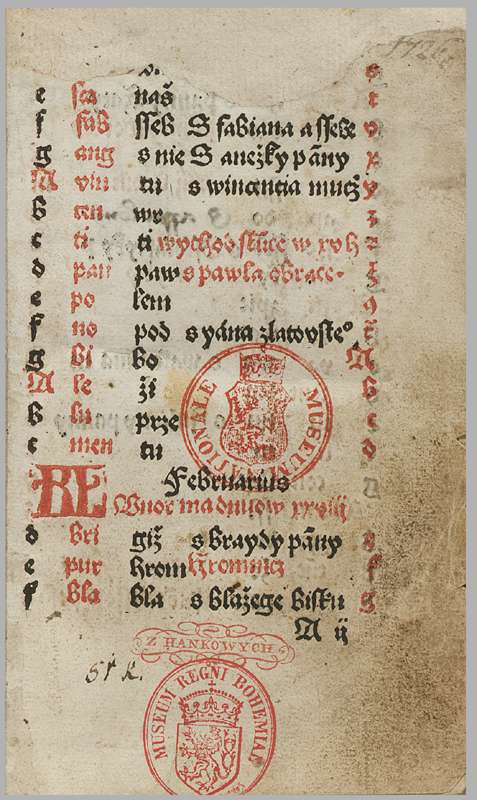 1726
e sca naš
f fab sseb S fabiana a ssebe v
g ang s nie S anežky pāny x
A vin tu s wincencia mucž y
b cen we z
c ti ti wychod slūce w xv h
d pau paw s pawla obrace-
e po lem
f no pod s yána zlatovste°
g bi bo A
A le ži b
b lu prze c
c men tu d
Februarius
KL Vnor ma dnuow xxviij
d Bri giž s braydy pāny e
e pur hrom Hromnicz f
f bla bla s blažege bisku g
A ij
MUSEUM NATIONALE
Z HANKOWYCH
MUSEUM REGNI BOHEMIAE